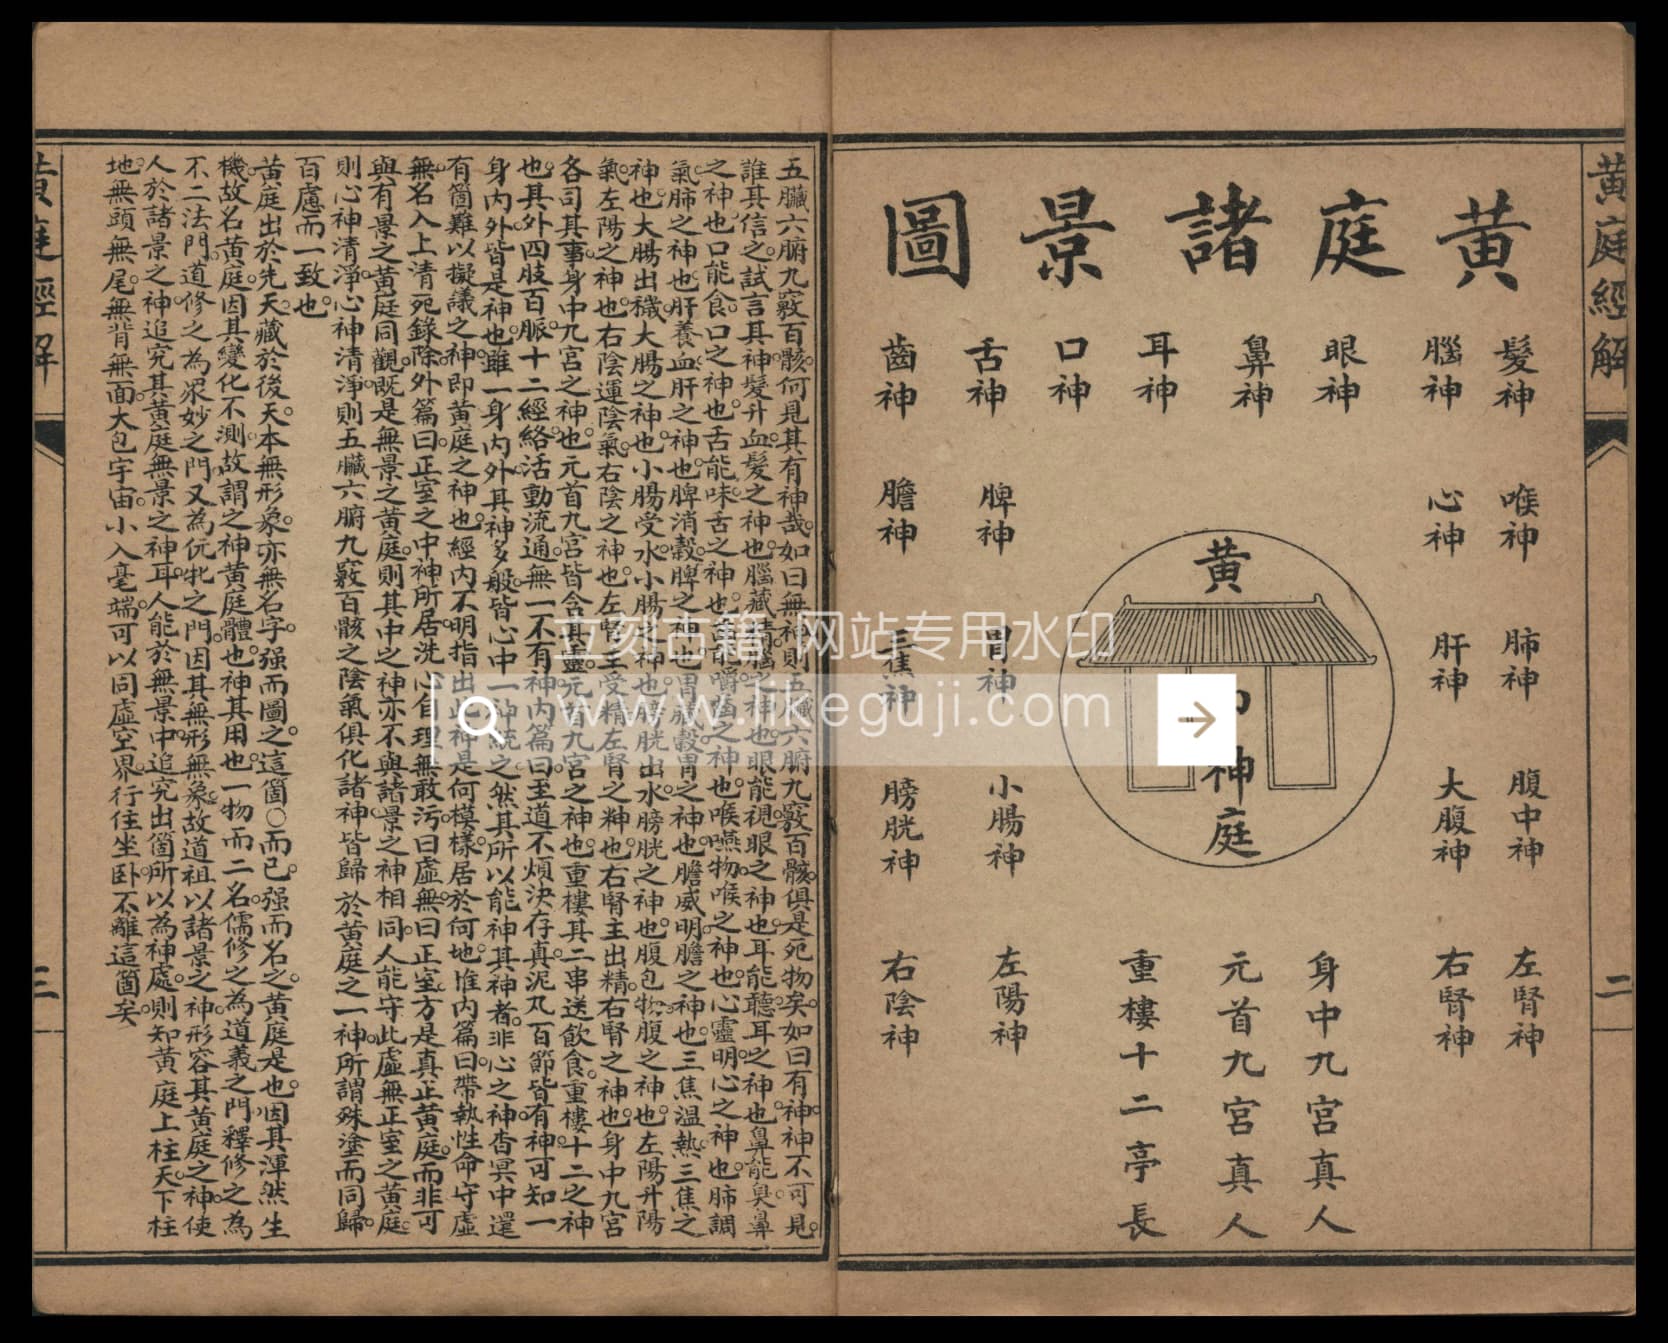 黃庭經解
二
黃庭諸景圖
髮神
腦神
眼神
鼻神
耳神
口神
舌神
齒神
喉神
心神
脾神
膽神
肺神
肝神
胃神
三焦神
腹中神
大腹神
小腸神
膀胱神
左腎神
右腎神
身中九宮真人
元首九宮真人
重樓十二亭長
左陽神
右陰神
黃
神
庭
五臟六腑九竅百骸何見其有神哉如曰無神則五臟六腑九竅百骸俱是死物矣如曰有神神不可見
誰其信之試言其神髮升血髮之神也腦藏精腦之神也眼能視眼之神也耳能聽耳之神也鼻能臭鼻
之神也口能食口之神也舌能味舌之神也齒能嚼齒之神也喉嚥物喉之神也心靈明心之神也肺調
氣肺之神也肝養血肝之神也脾消穀脾之神也胃腸穀胃之神也膽威明膽之神也三焦溫熱三焦之
神也大腸出穢大腸之神也小腸受水小腸之神也膀胱出水膀胱之神也腹包物腹之神也左陽升陽
氣左陽之神也右陰運陰氣右陰之神也左腎主受精左腎之神也右腎主出精右腎之神也身中九宮
各司其事身中九宮之神也元首九宮皆含其靈元首九宮之神也重樓其二串送飲食重樓十二之神
也其外四肢百脈十二經絡活動流通無一不有神內篇曰至道不煩決存真泥丸百節皆有神可知一
身內外皆是神也雖一身內外其神多般皆心中一神統之然其所以能神其神者非心之神杳冥中還
有箇難以擬議之神即黃庭之神也經內不明指出此神是何模樣居於何地惟內篇曰帶執性命守虛
無名入上清死錄除外篇曰正室之中神所居洗心自理無敢污曰虛無曰正室方是真正黃庭而非可
與有景之黃庭同觀既是無景之黃庭則其中之神亦不與諸景之神相同人能守此虛無正室之黃庭
則心神清淨心神清淨則五臟六腑九竅百骸之陰氣俱化諸神皆歸於黃庭之一神所謂殊塗而同歸
百慮而一致也
黃庭出於先天藏於後天本無形象亦無名字强而圖之這箇〇而已强而名之黃庭是也因其渾然生
機故名黃庭因其變化不測故謂之神黃庭體也神其用也一物而二名儒修之為道義之門釋修之為
不二法門道修之為眾妙之門又為仉牝之門因其無形無象故道祖以諸景之神形容其黃庭之神使
人於諸景之神追究其黃庭無景之神耳人能於無景中追究出箇所以為神處則知黃庭上柱天下柱
地無頭無尾無背無面大包宇宙小入毫端可以同虛空界行住坐臥不離這箇矣
黃庭經解
三
立刻古籍 网站专用水印
www.likeguji.com